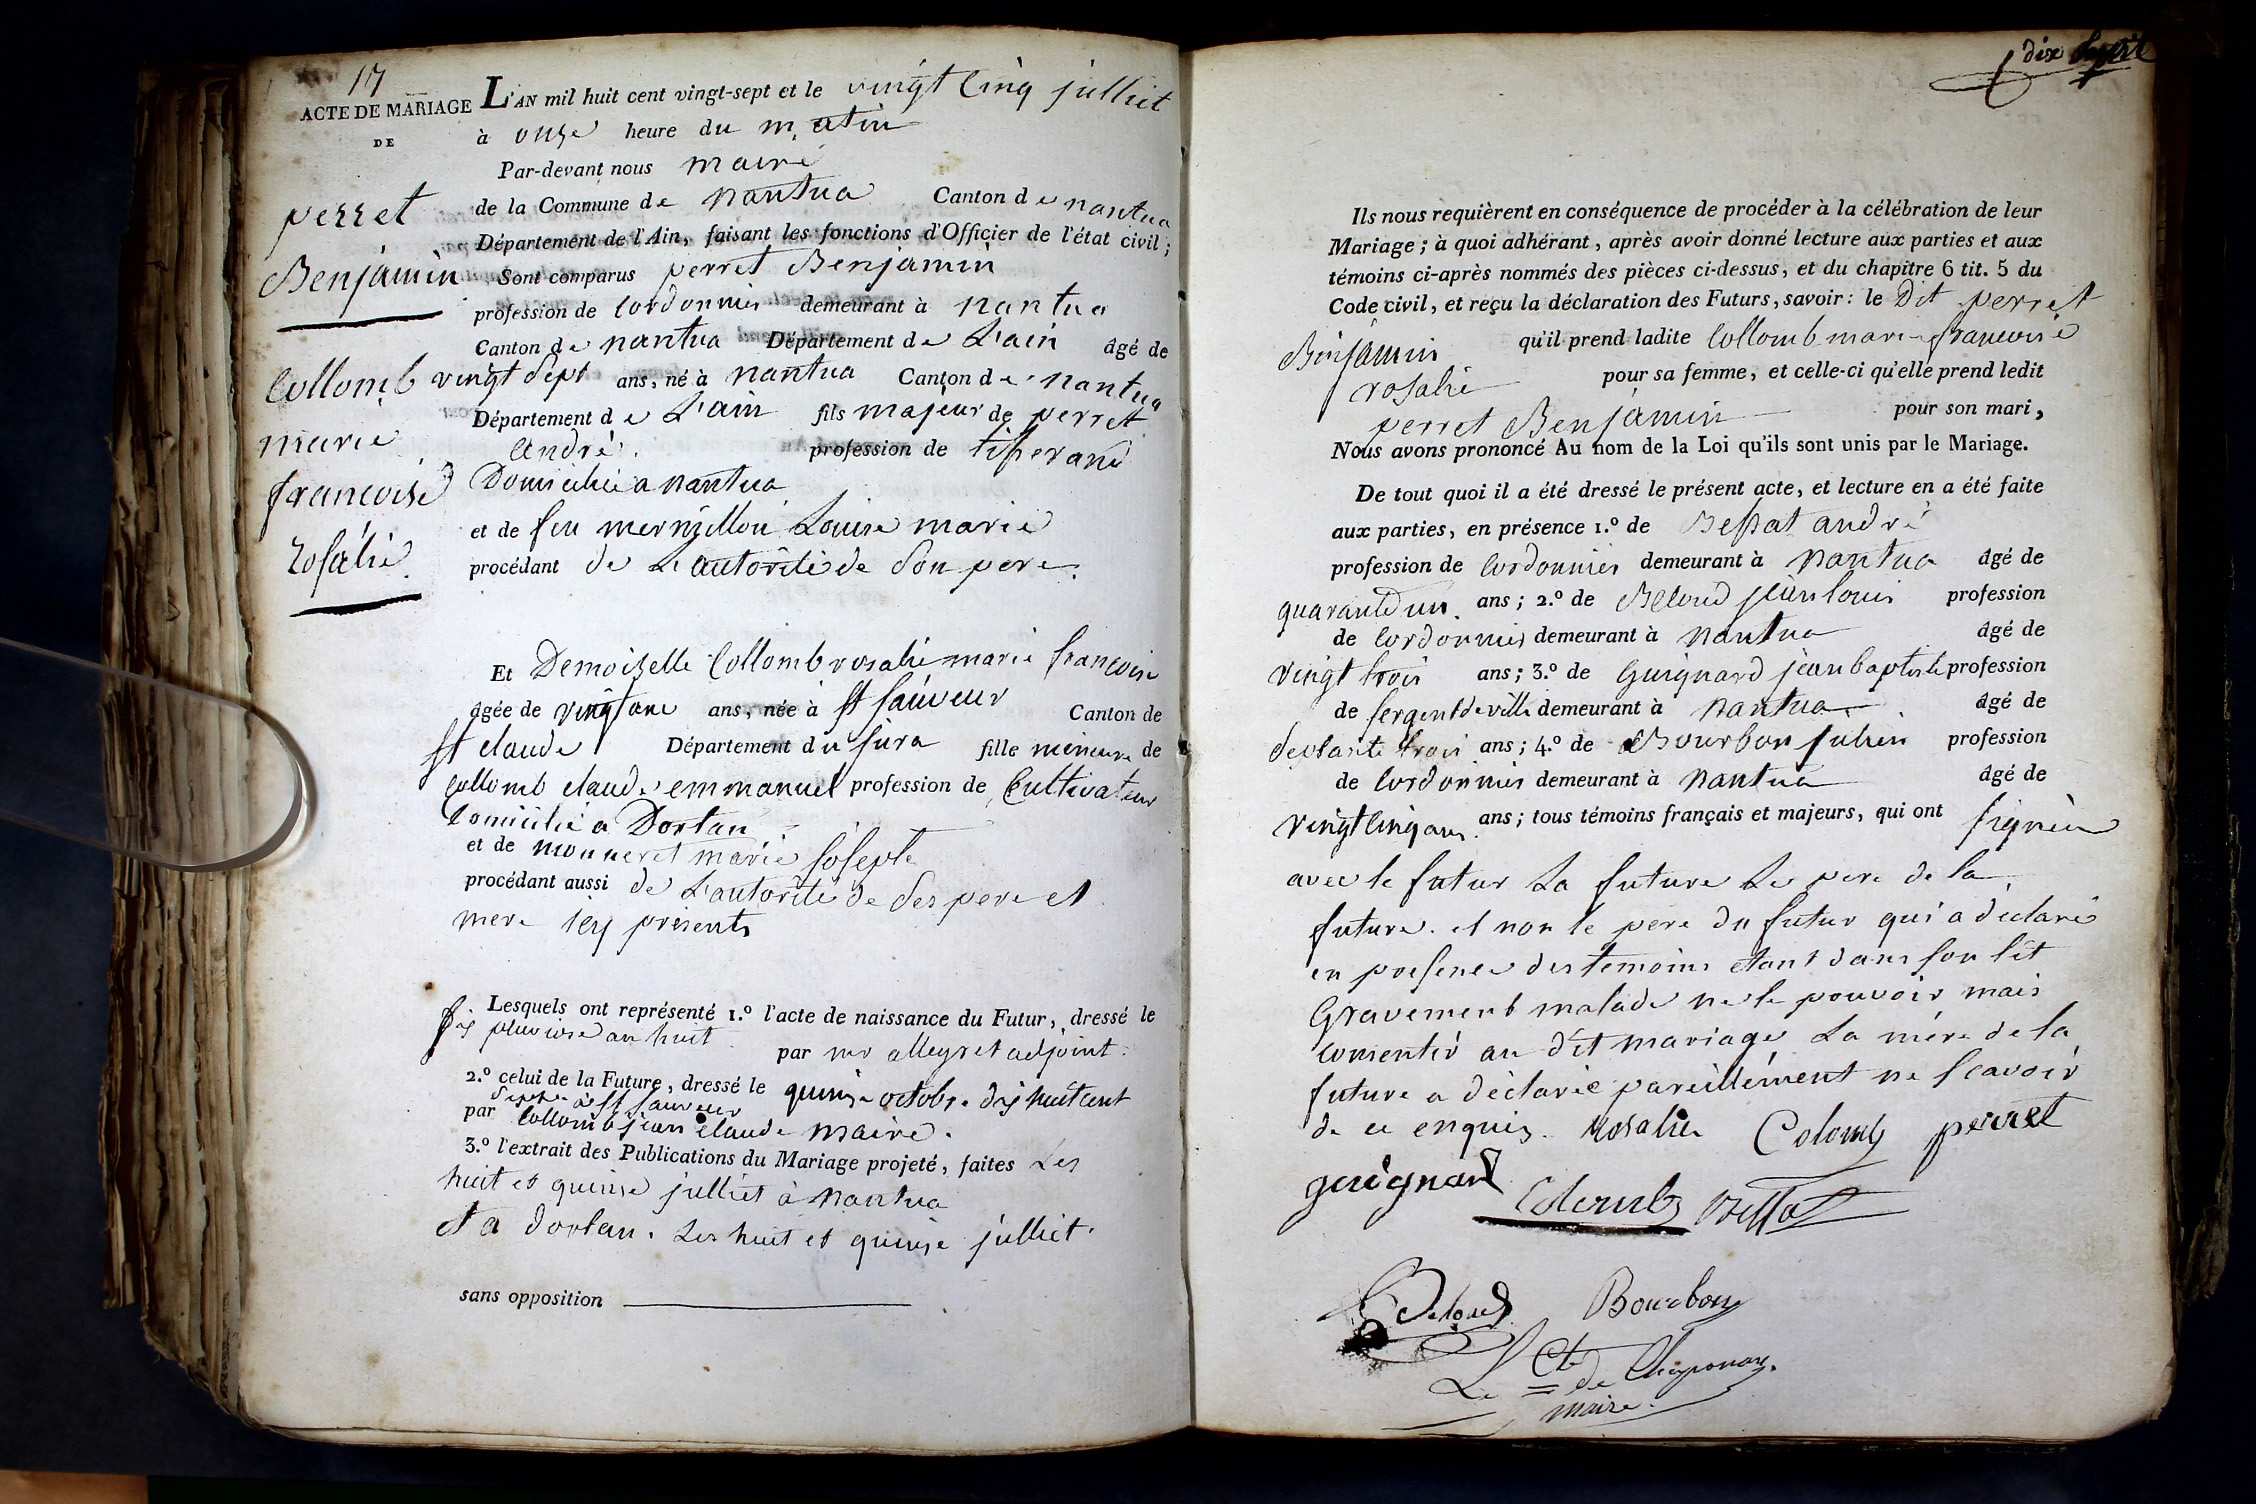 17
ACTE DE MARIAGE
DE
perret
Benjamin
Collomb
marie
francoise
rosalie
L'AN mil huit cent vingt-sept et le vingt cinq julliet
à onze heure du matin
Par-devant nous maire
de la Commune de nantua Canton de nantua
Département de l'Ain, faisant les fonctions d'Officier de l'état civil;
Sont comparus perret Benjamin
profession de cordonnier demeurant à nantua
Canton de nantua Département de L'ain âgé de
vingt sept ans, né à nantua Canton de nantua
Département de L'ain fils majeur de perret
andré profession de tisserand
Domicilié a nantua
et de feu mermillon Louise marie
procédant de L'autorité de son pere
Et Demoiselle Collomb rosalie marie francoise
âgée de vingt ans, née à st sauveur Canton de
st claude Département du jura fille mineure de
Collomb claude emmanuel profession de Cultivateur
Domicilié a Dortan
et de monneret marie josephte
procédant aussi de L'autorité de ses pere et
mere icy présents
Lesquels ont représenté 1.º l'acte de naissance du Futur, dressé le
six pluviose an huit par mr allegret adjoint.
2.º celui de la Future, dressé le quinze octobre dix huit cent
sept a st sauveur
par Collomb jean claude maire.
3.º l'extrait des Publications du Mariage projeté, faites Les
huit et quinze julliet à nantua
et a dortan. Les huit et quinze julliet.
sans opposition
dix huit
Ils nous requièrent en conséquence de procéder à la célébration de leur
Mariage; à quoi adhérant, après avoir donné lecture aux parties et aux
témoins ci-après nommés des pièces ci-dessus, et du chapitre 6 tit. 5 du
Code civil, et reçu la déclaration des Futurs, savoir: le Dit perret
Benjamin qu'il prend ladite Collomb marie francoise
rosalie pour sa femme, et celle-ci qu'elle prend ledit
perret Benjamin pour son mari,
Nous avons prononcé Au nom de la Loi qu'ils sont unis par le Mariage.
De tout quoi il a été dressé le présent acte, et lecture en a été faite
aux parties, en présence 1.º de Bessat andré
profession de Cordonnier demeurant à nantua âgé de
quarante un ans; 2.º de Beloud jean louis profession
de Cordonnier demeurant à nantua âgé de
vingt trois ans; 3.º de Guignard jean baptiste profession
de sergent de ville demeurant à nantua âgé de
septante trois ans; 4.º de Bourbon julien profession
de Cordonnier demeurant à nantua âgé de
vingt cinq ans ans; tous témoins français et majeurs, qui ont signés
avec le futur La future Le pere de la
future. et non le pere du futur qui a declaré
en presence des temoins etant dans son lit
Gravement malade ne le pouvoir mais
consentir au dit mariage La mère de la
future a déclarée pareillement ne scavoir
de ce enquis. Rosalie Colomb perret
guignard Colomb Bessat
Beloud Bourbon
Le Cte de Chaponay
maire.